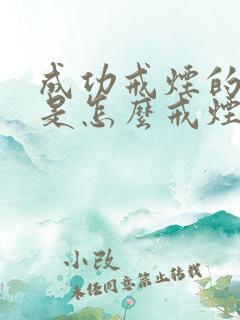 成功戒煙的
是怎麼戒煙
小改
未经同意禁止转载